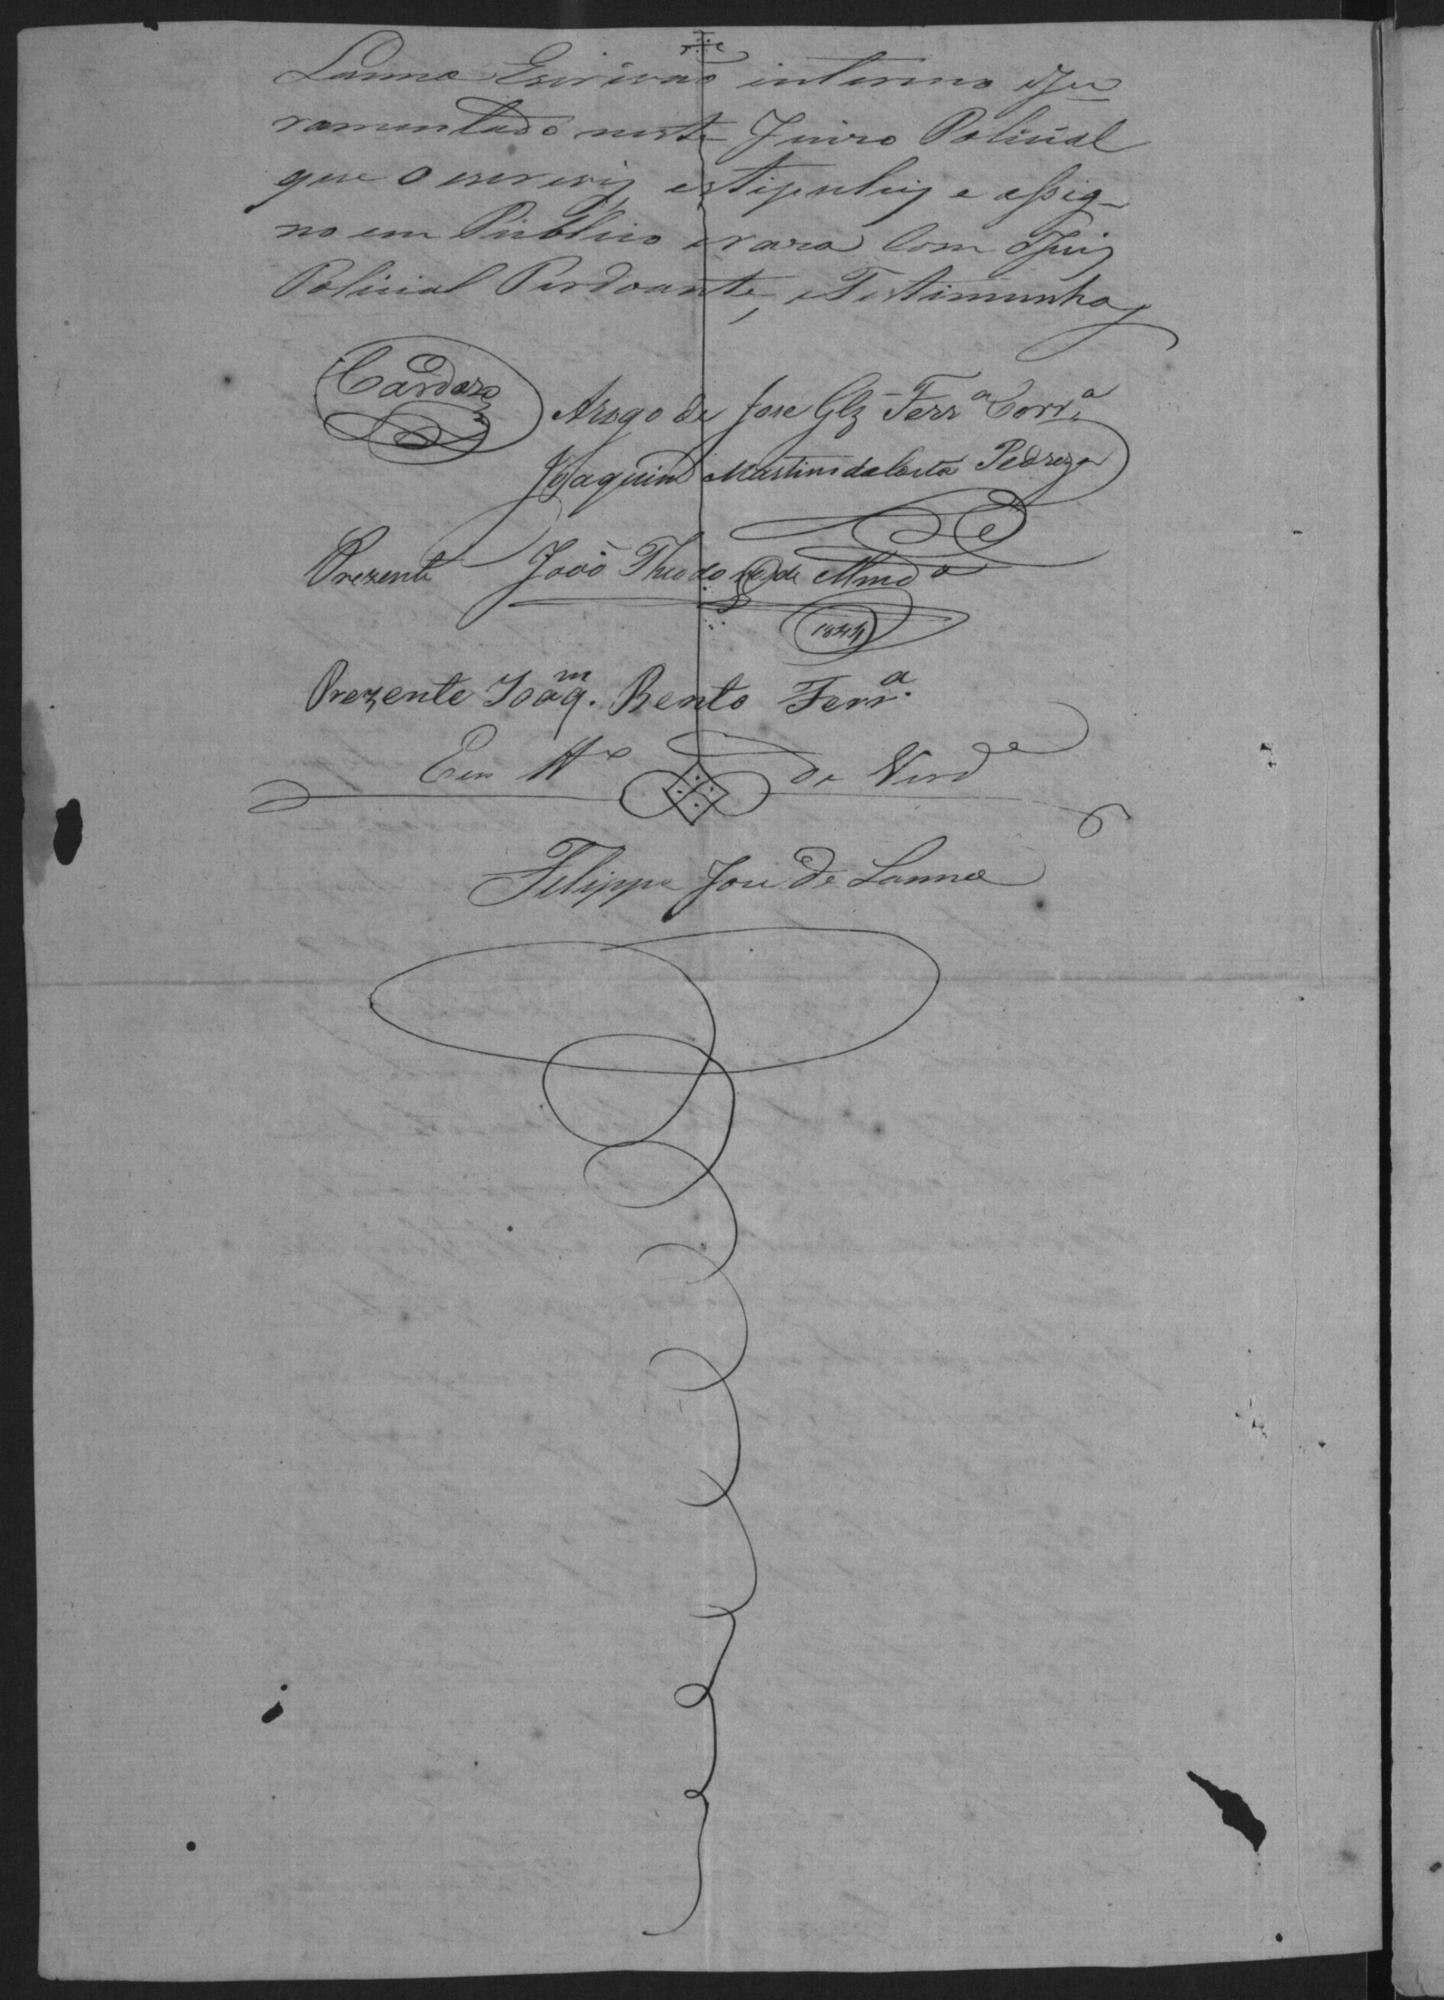 Lanna Escrivaõ interino eJu
ramentado neste Juizo Policial
que o escrevi, estipuley e assig-
no em Publico e razo Com oJuiz
Policial Perdoante, e Testimunhas
Cardozo
Arogo de Jose Glz Ferrª Corrª
Joaquim Martins da Costa Pedreza
Prezente João Theodoro de Almdª
1844
Prezente Joaqm. Bento Ferrª.
Em de Verde
Filippe Jose de Lanna